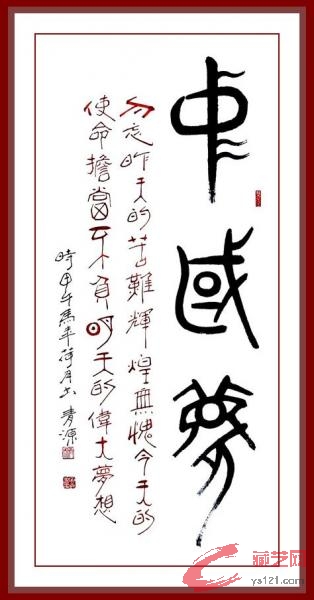 中國夢
勿忘昨天的苦難輝煌無愧今天的
使命擔當不負明天的偉大夢想
時甲午馬年荷月
青源
藏艺网
ys121.com